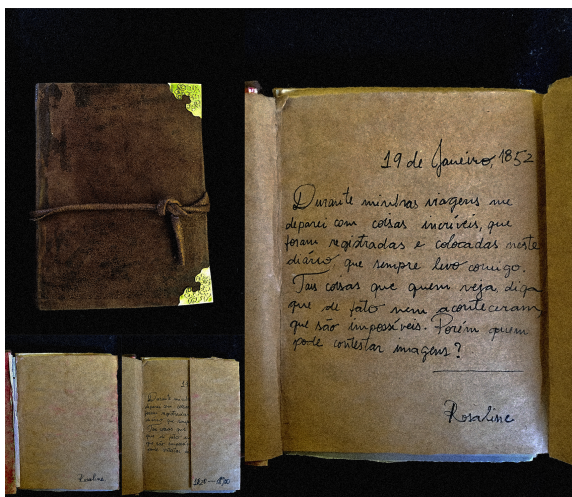 19 de Janeiro, 1852
Durante minhas viagens me
deparei com coisas incríveis, que
foram registradas e colocadas neste
diário que sempre levo comigo.
Tais coisas que quem veja, diga
que de fato nem aconteceram
que são impossíveis. Porém quem
pode contestar imagens?
Rosaline
Rosaline